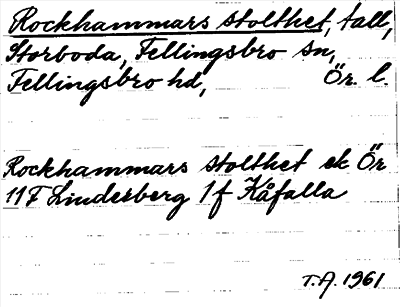 Rockhammars stolthet, tall,
Storboda, Fellingsbro sn,
Fellingsbro hd, Ör. l.
Rockhammars stolthet ek Ör
11F Lindesberg 1f Kåfalla
T.A. 1961